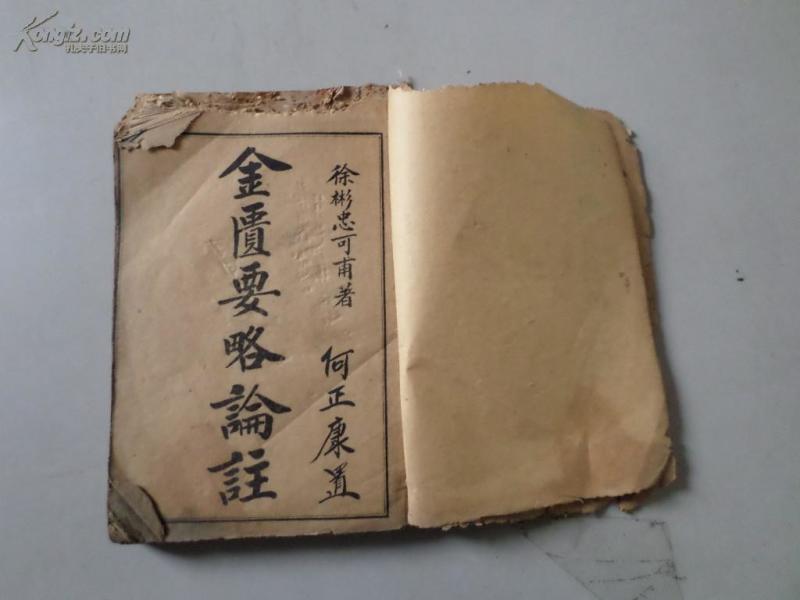 Kongfz.com
孔夫子旧书网
徐彬忠可甫著
何正康置
金匱要略論註